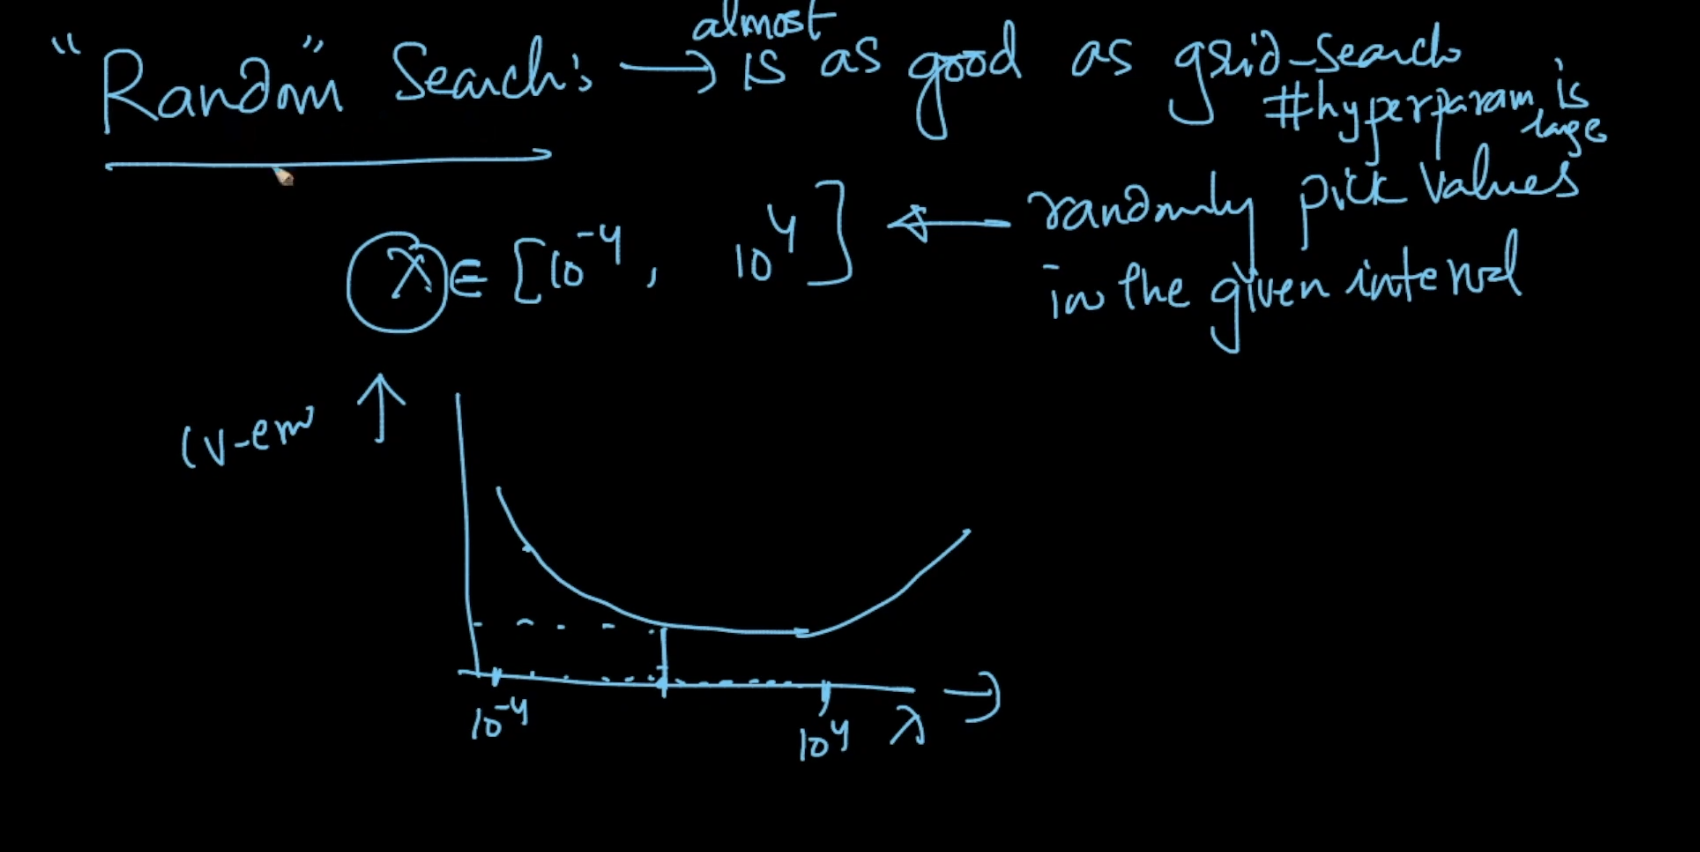 "Random" Search: → almost is as good as grid-search
#hyperparam is large
λ ∈ [10⁻⁴, 10⁴] ← randomly pick values
in the given interval
CV-err ↑
10⁻⁴
10⁴ λ →